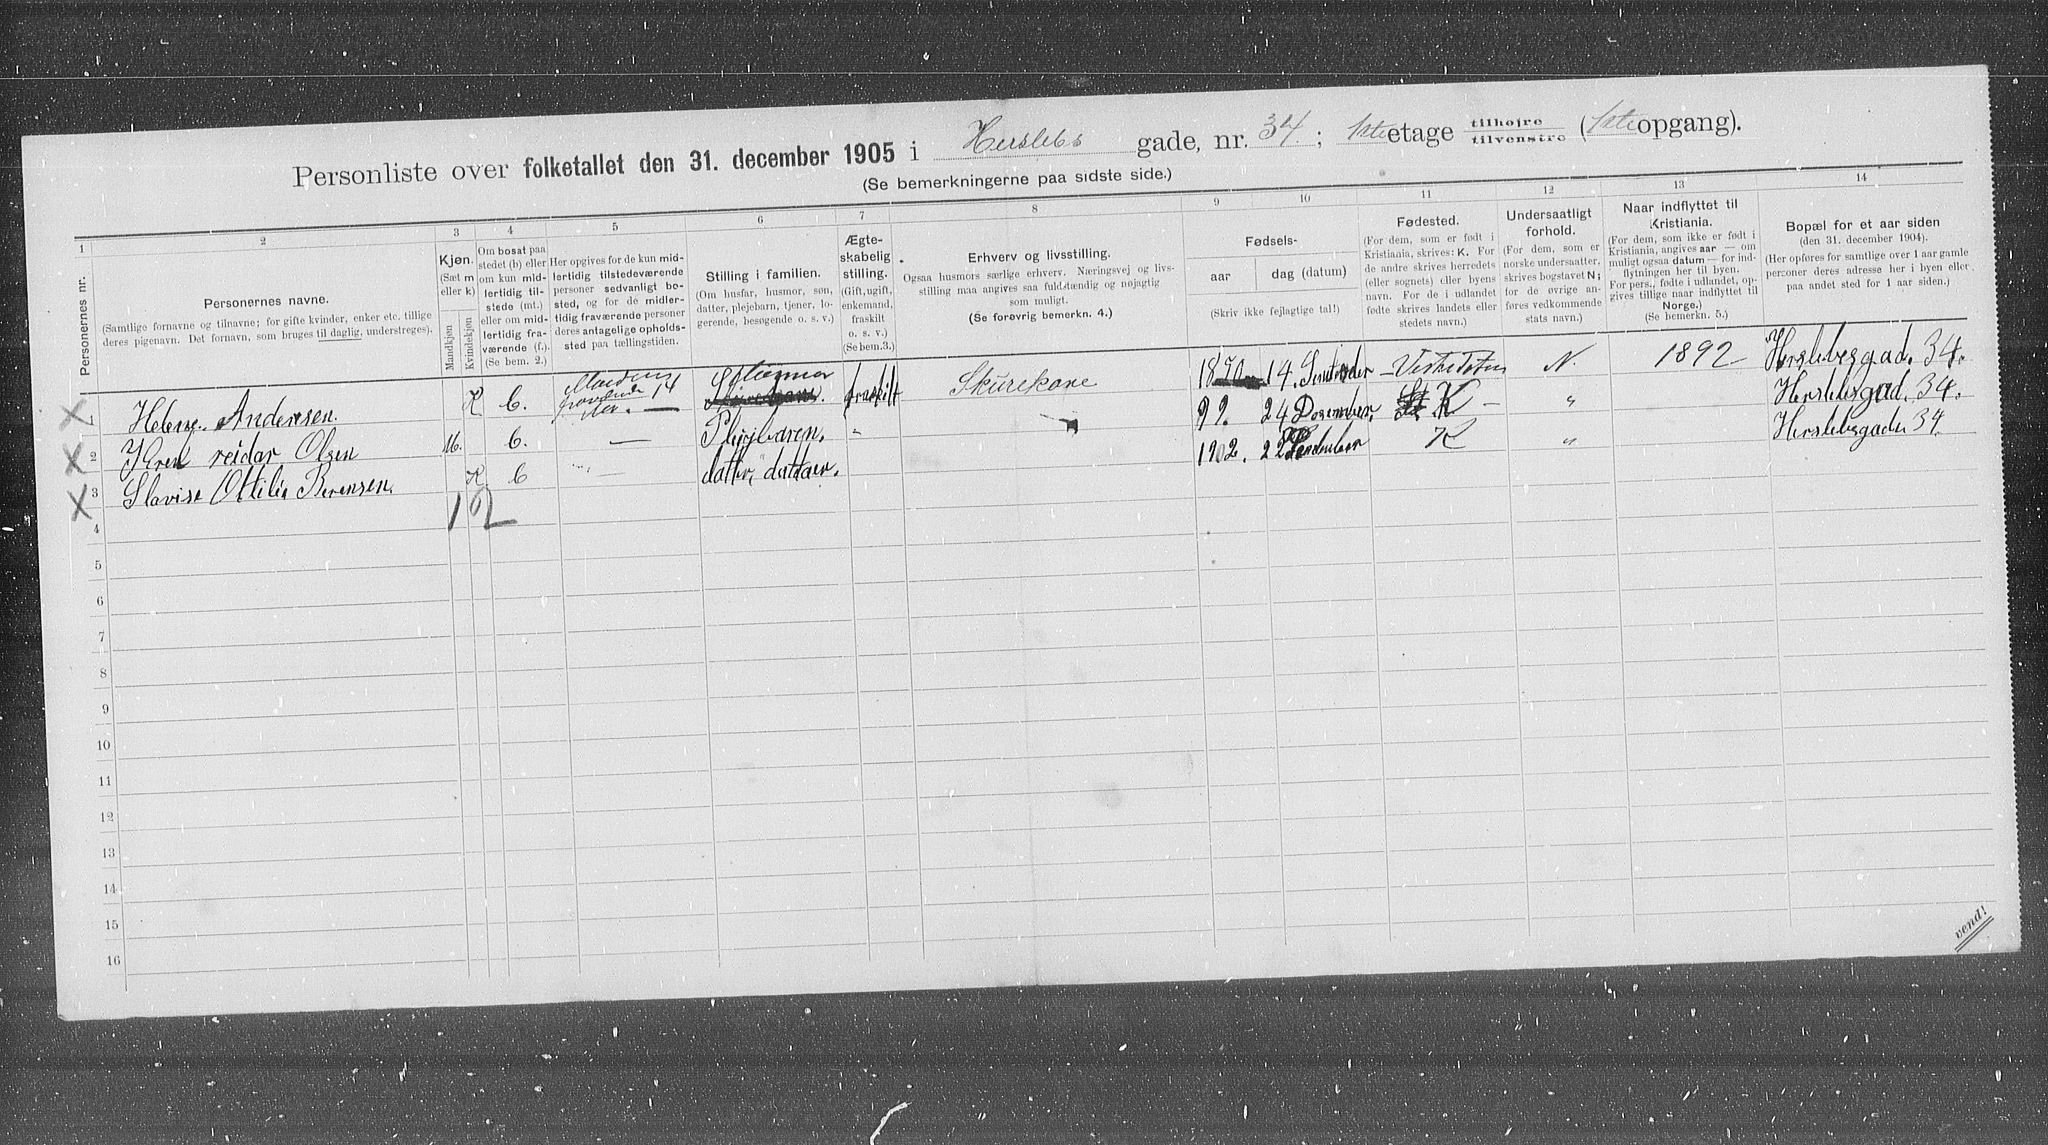 Personliste over folketallet den 31. december 1905 i Herslebs gade, nr. 34. ; 1ste etage tilhøjre tilvenstre (1ste opgang).
(Se bemerkningerne paa sidste side.)
1 2 3 4 5 6 7 8 9 10 11 12 13 14
Personernes nr.
Personernes navne.
(Samtlige fornavne og tilnavne; for gifte kvinder, enker etc. tillige
deres pigenavn. Det fornavn, som bruges til daglig, understreges).
Kjøn.
(Sæt m
eller k)
Mandkjøn
Kvindekjøn
Om bosat paa
stedet (b) eller
om kun mid-
lertidig til-
stede (mt.)
eller om mid-
lertidig fra-
værende (f.).
(Se bem. 2.)
Her opgives for de kun mid-
lertidig tilstedeværende
personer sedvanligt bo-
sted, og for de midler-
tidig fraværende personer
deres antagelige opholds-
sted paa tællingstiden.
Stilling i familien.
(Om husfar, husmor, søn,
datter, plejebarn, tjener, lo-
gerende, besøgende o. s. v.)
Ægte-
skabelig
stilling.
(Gift, ugift,
enkemand,
fraskilt
o. s. v.)
(Se bem. 3.)
Erhverv og livsstilling.
Ogsaa husmors særlige erhverv. Næringsvej og livs-
stilling maa angives saa fuldstændig og nøjagtig
som muligt.
(Se forøvrig bemerkn. 4.)
Fødsels-
aar dag (datum)
(Skriv ikke fejlagtige tal!)
Fødested.
(For dem, som er født i
Kristiania, skrives: K. For
de andre skrives herredets
(eller sognets) eller byens
navn. For de i udlandet
fødte skrives landets eller
stedets navn.)
Undersaatligt
forhold.
(For dem, som er
norske undersaatter,
skrives bogstavet N;
for de øvrige an-
føres vedkommende
stats navn.)
Naar indflyttet til
Kristiania.
(For dem, som ikke er født i
Kristiania, angives aar — om
muligt ogsaa datum — for ind-
flytningen her til byen.
For pers., fødte i udlandet, op-
gives tillige naar indflyttet til
Norge.)
(Se bemerkn. 5.)
Bopæl for et aar siden
(den 31. december 1904).
(Her opføres for samtlige over 1 aar gamle
personer deres adresse her i byen eller
paa andet sted for 1 aar siden.)
X 1 Helene Andersen. K 14 fraskilt Skurekone 14. N. 1892 Herslebsgad. 34.
X 2 reidar Olsen M. 24 Desember K — " Herslebsgad. 34.
X 3 Ottilia Berensen. K datter, datter. 1902. 22 K " Herslebsgade 34
4 1 2
5
6
7
8
9
10
11
12
13
14
15
16
vend!